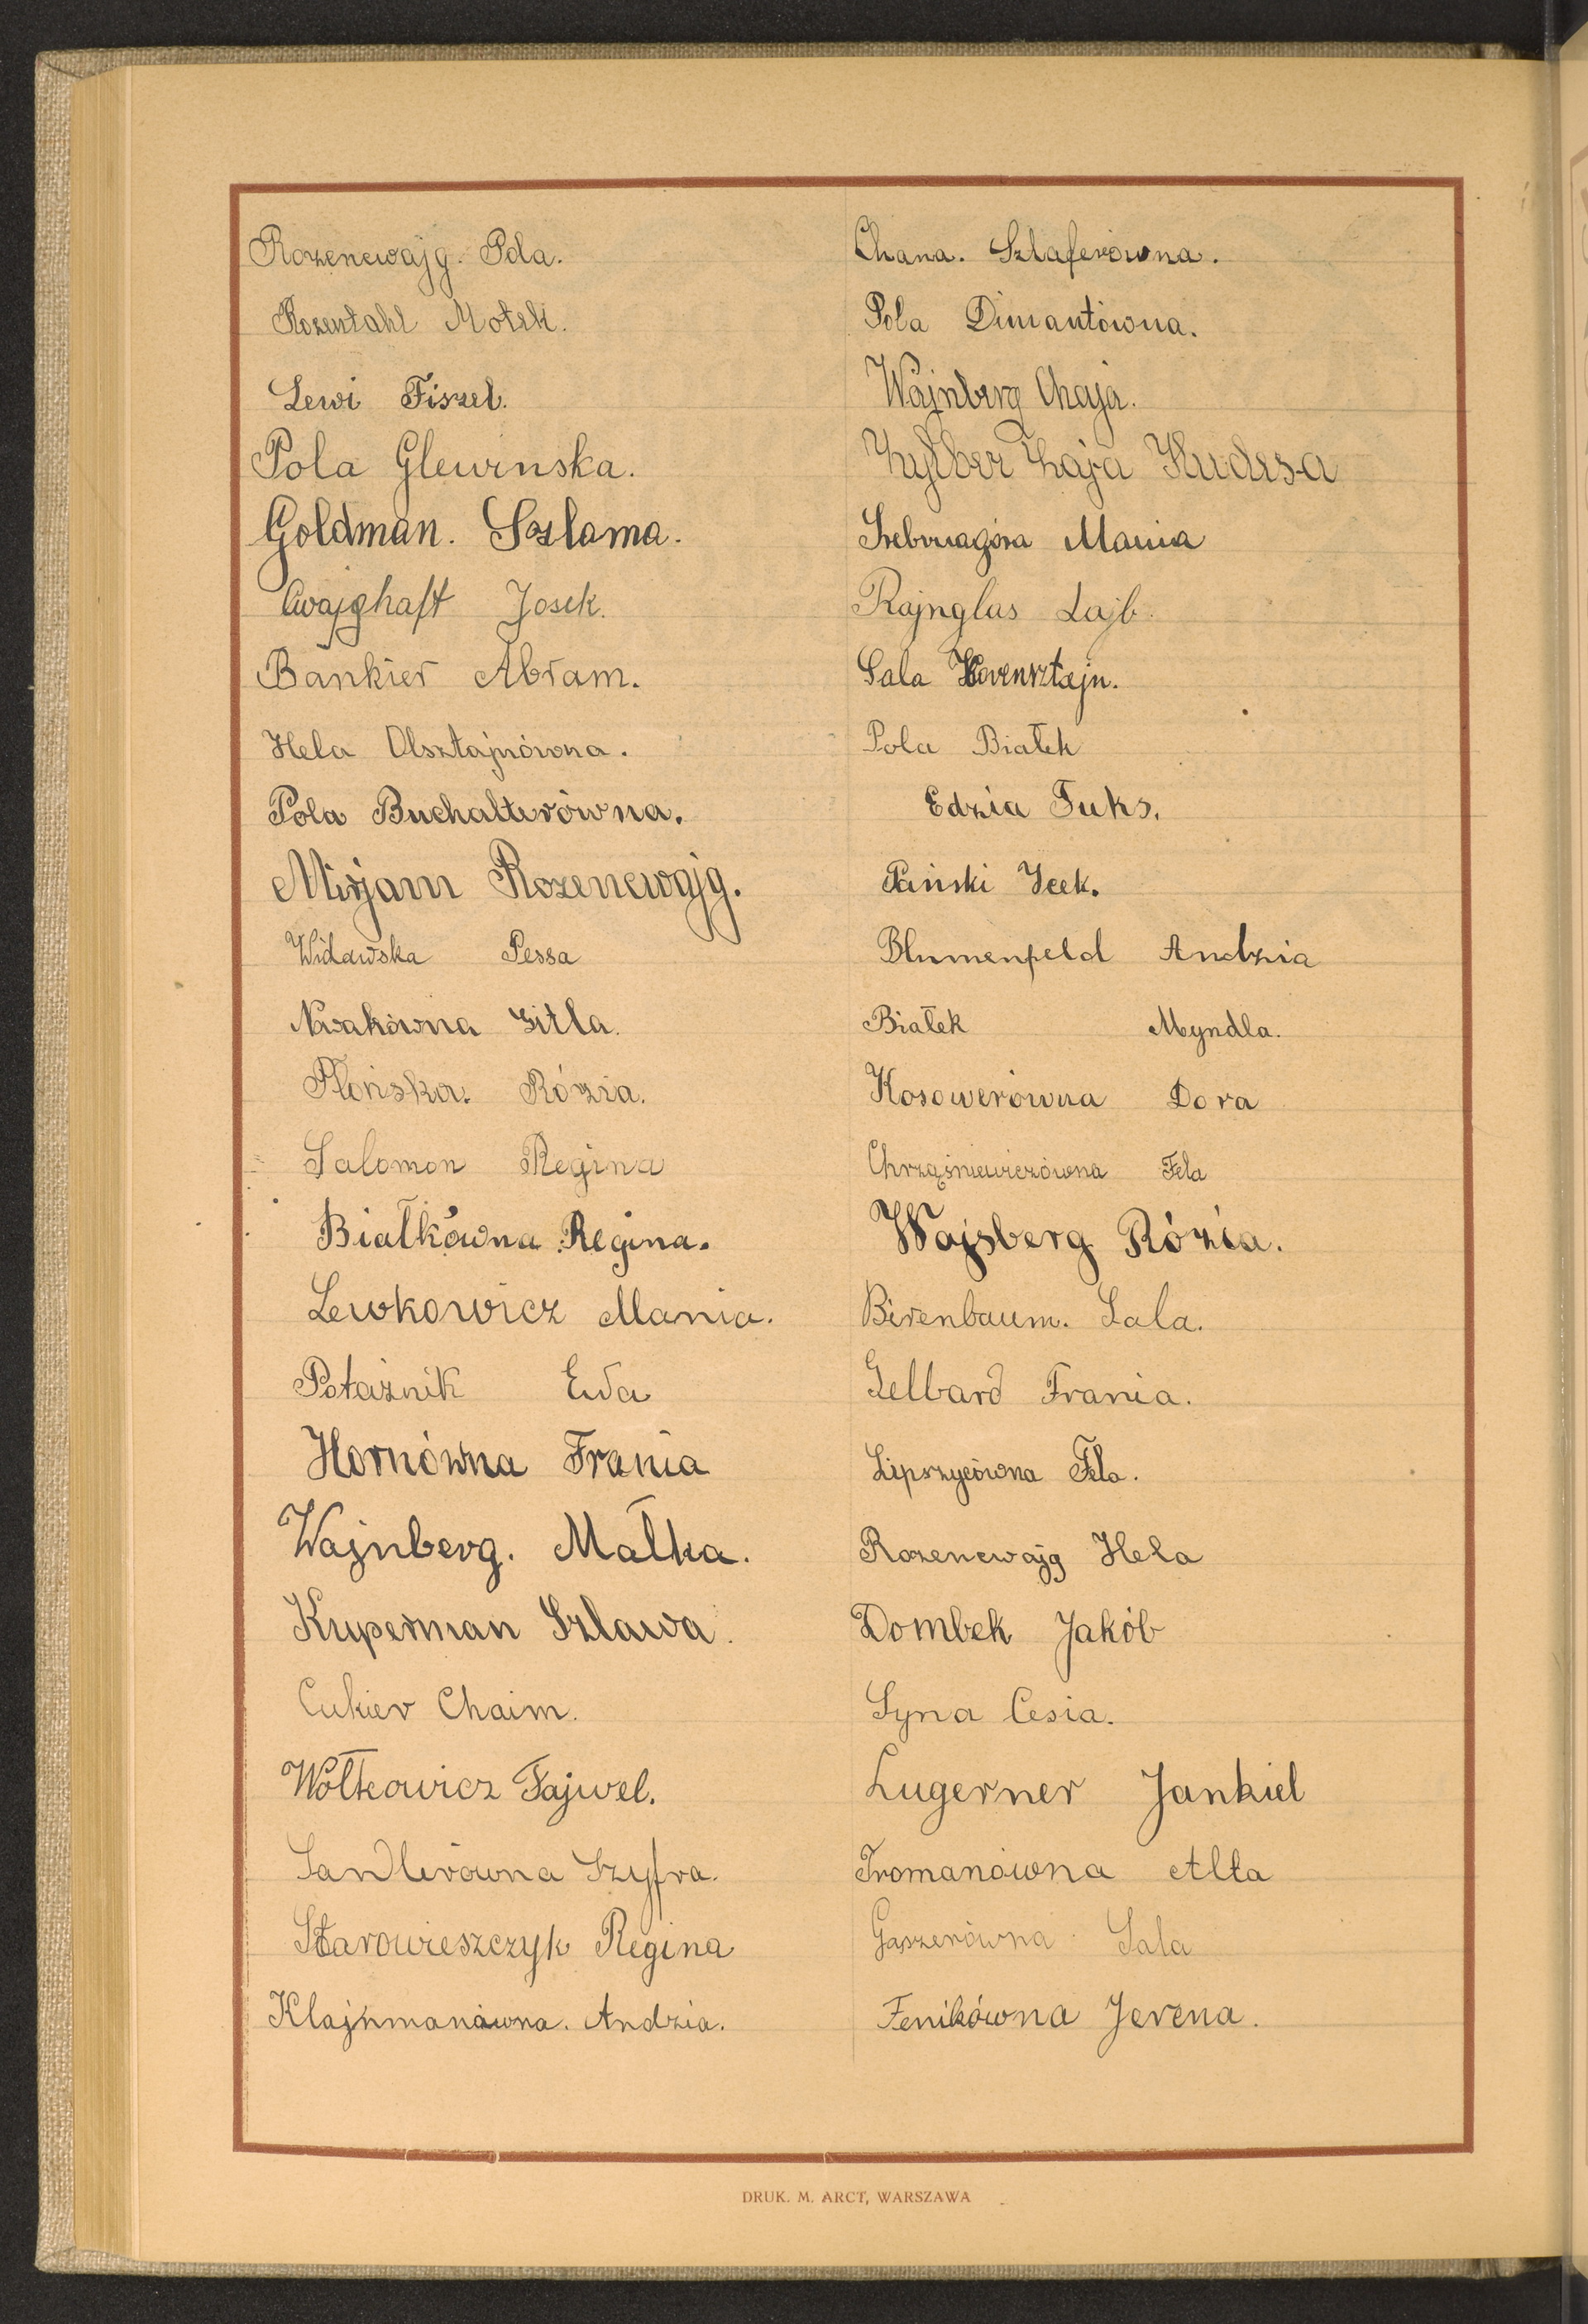 Rozencwajg. Pola.
Rozentahl Motek.
Lewi Fiszel.
Pola Glewinska.
Goldman. Szlama.
Cwajghaft Josek.
Bankier Abram.
Hela Olsztajnówna.
Pola Buchalterówna.
Mirjam Rozencwajg.
Widawska Pessa
Nowakówna Gitla.
Płońska. Rózia.
Salomon Regina
Białkówna Regina.
Lewkowicz Mania.
Potażnik Ewa
Hornówna Frania
Wajnberg. Małka.
Kuperman Szlawa.
Cukier Chaim.
Wołkowicz Fajwel.
Sandlerówna Szyfra.
Starowieszczyk Regina
Klajnmanówna. Andzia.
Chana. Szlaferówna.
Pola Dimantówna.
Wajnberg Chaja.
Zylber Łaja Hudesa
Srebrnagóra Mania
Rajnglas Lajb.
Sala Horensztajn.
Pola Białek
Edzia Fuks.
Pański Icek.
Blumenfeld Andzia
Białek Myndla.
Kosowerówna Dora
Chrząśniewiczówna Fela
Wajsberg Rózia.
Birenbaum. Sala.
Gelbard Frania.
Lipszycówna Fela.
Rozencwajg Hela
Dombek Jakób
Syna Cesia.
Lugerner Jankiel
Fromanówna Alta
Gaszerówna Sala
Fenikówna Jerena.
DRUK. M. ARCT, WARSZAWA